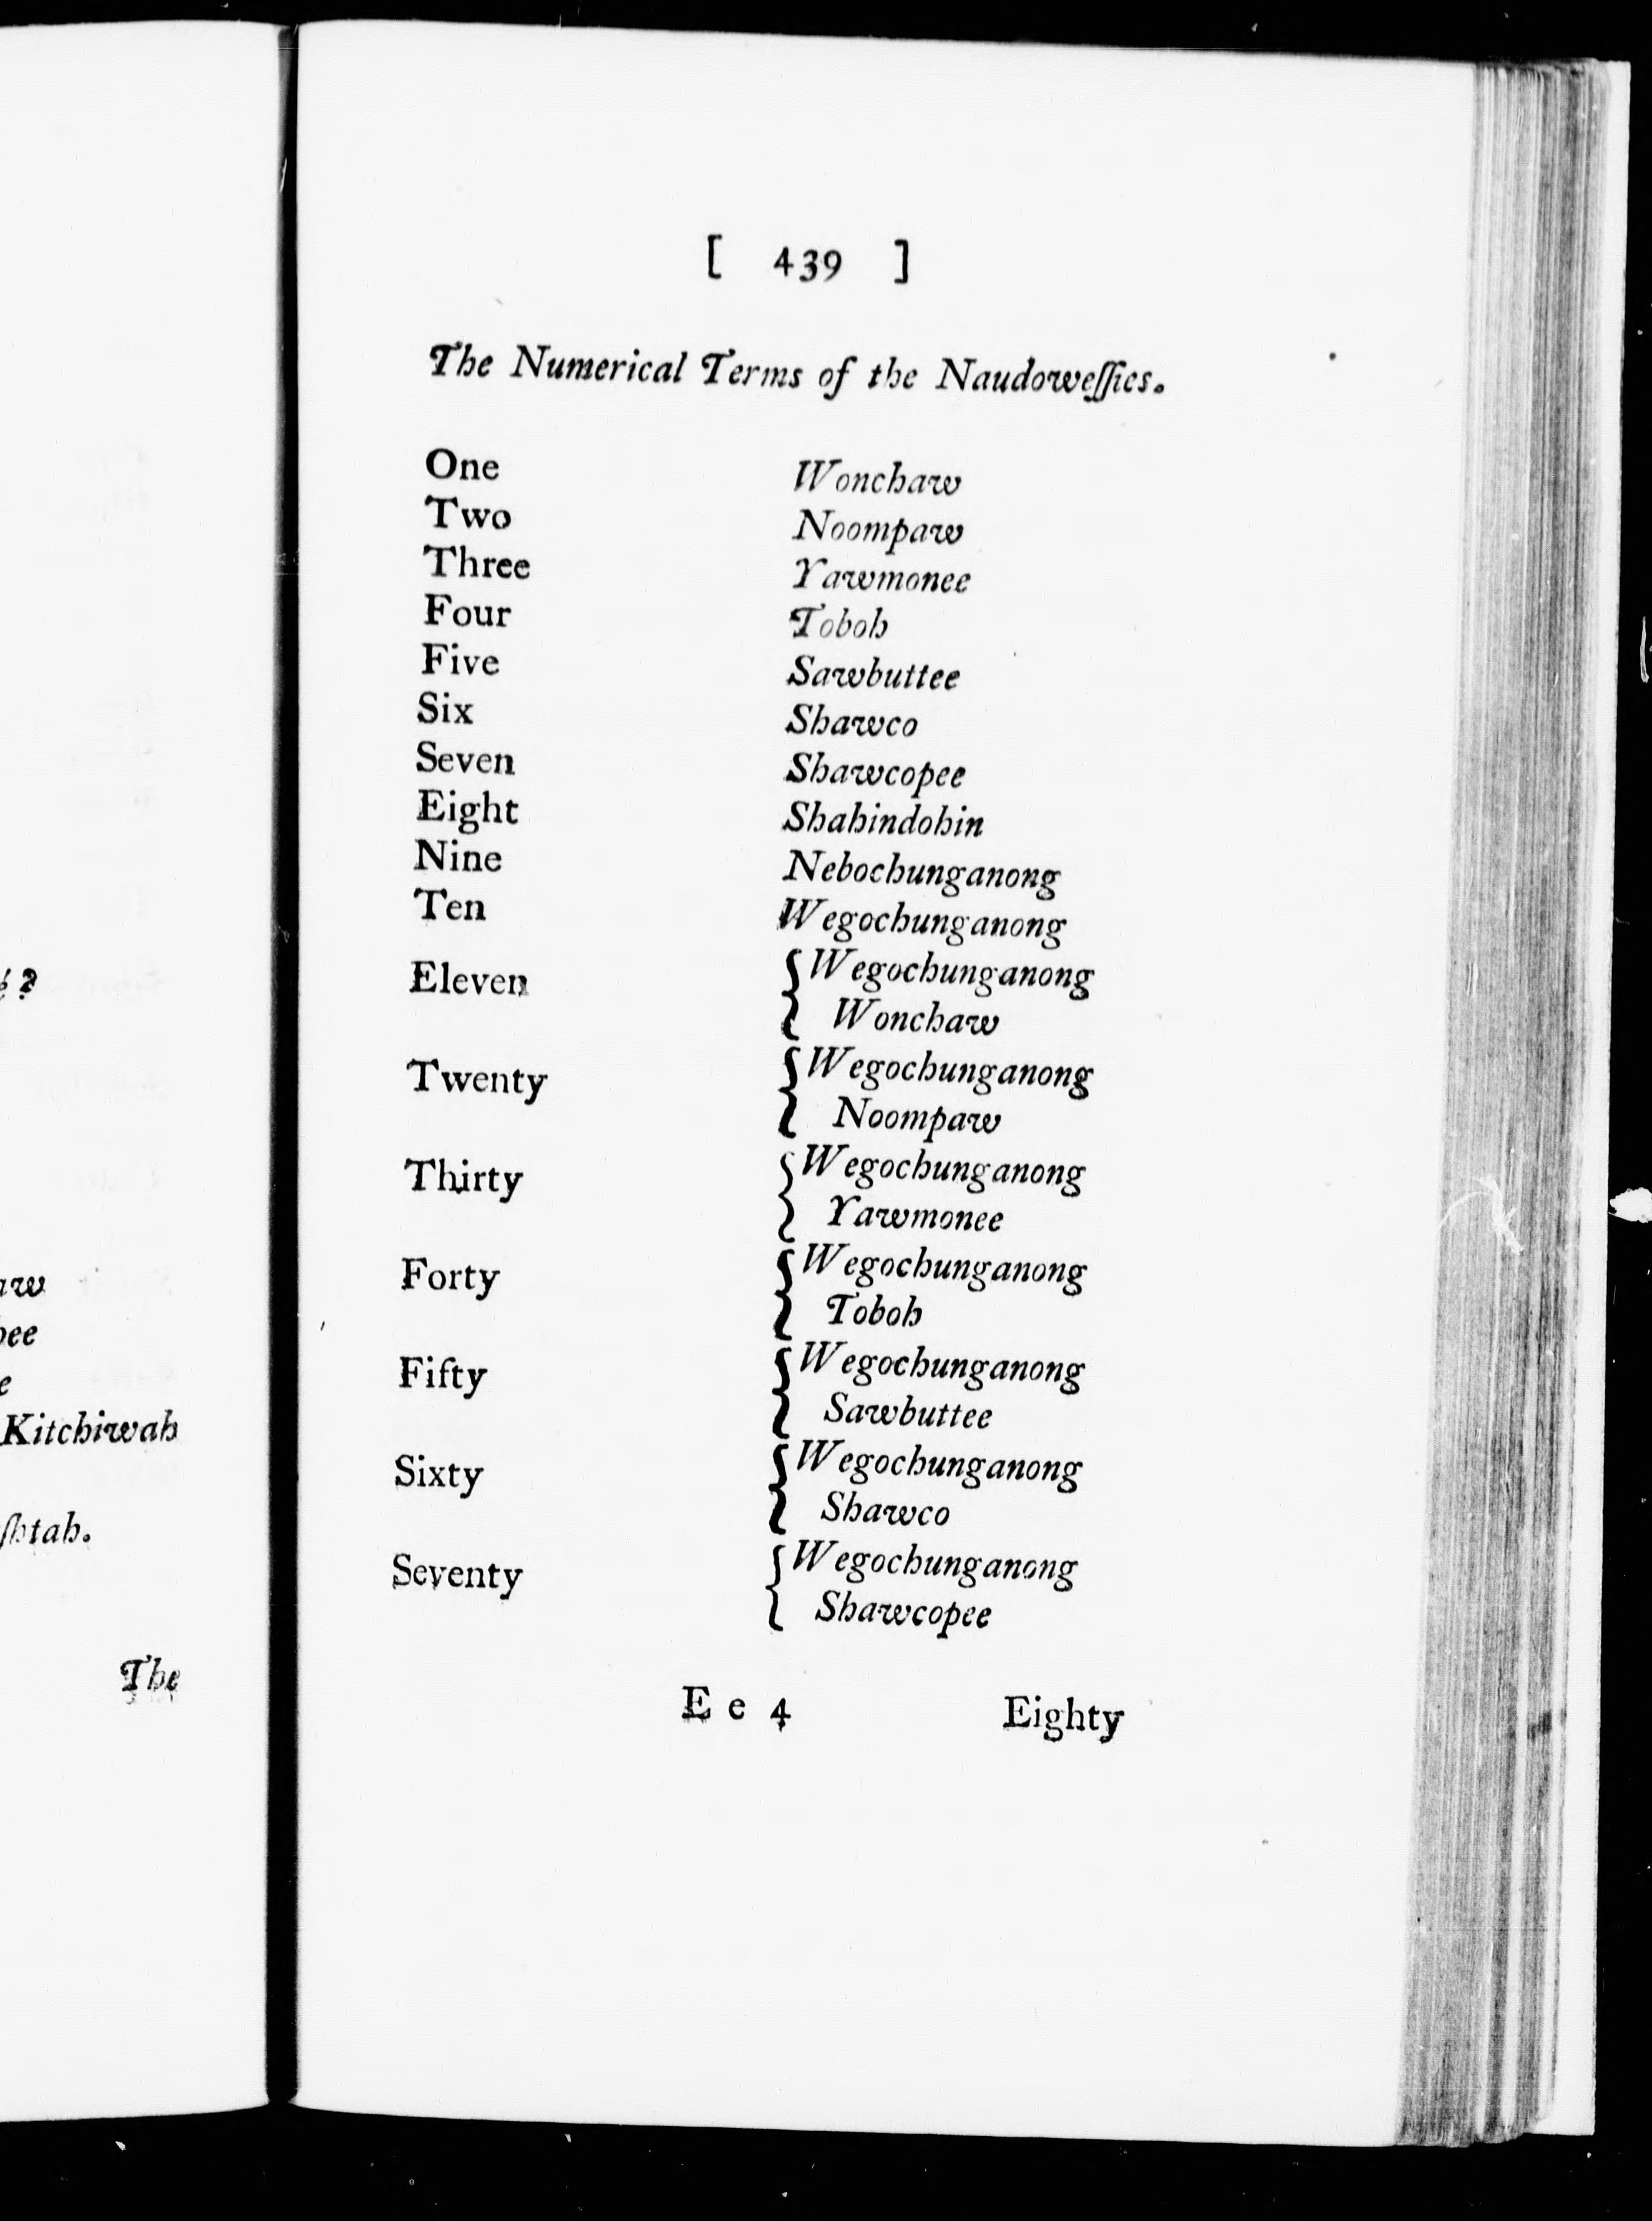 é?
aw
pee
e
Kitchiwah
ſhtah.
The
[ 439 ]
The Numerical Terms of the Naudoweſſies.
One Wonchaw
Two Noompaw
Three Yawmonee
Four Toboh
Five Sawbuttee
Six Shawco
Seven Shawcopee
Eight Shahindohin
Nine Nebochunganong
Ten Wegochunganong
Eleven { Wegochunganong
Wonchaw
Twenty { Wegochunganong
Noompaw
Thirty { Wegochunganong
Yawmonee
Forty { Wegochunganong
Toboh
Fifty { Wegochunganong
Sawbuttee
Sixty { Wegochunganong
Shawco
Seventy { Wegochunganong
Shawcopee
E e 4 Eighty